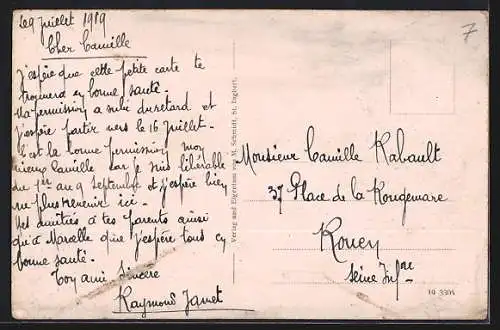 Le 9 Juillet 1919
Cher Camille
J'espère que cette petite carte te
trouvera en bonne santé.
Ma permission a subi du retard et
j'espère partir vers le 16 Juillet.
C'est la bonne permission mon
vieux Camille car je suis libérable
du 1er au 9 Septembre et j'espère bien
ne plus revenir ici.
Mes amitiés à tes parents ainsi
qu'à Marcelle que j'espère tous en
bonne santé.
Ton ami sincère
Raymond Janet
Verlag und Eigentum von M. Schmitt, St. Ingbert.
7
Monsieur Camille Rabault
37 Place de la Rougemare
Rouen
Seine Infre
19 3305